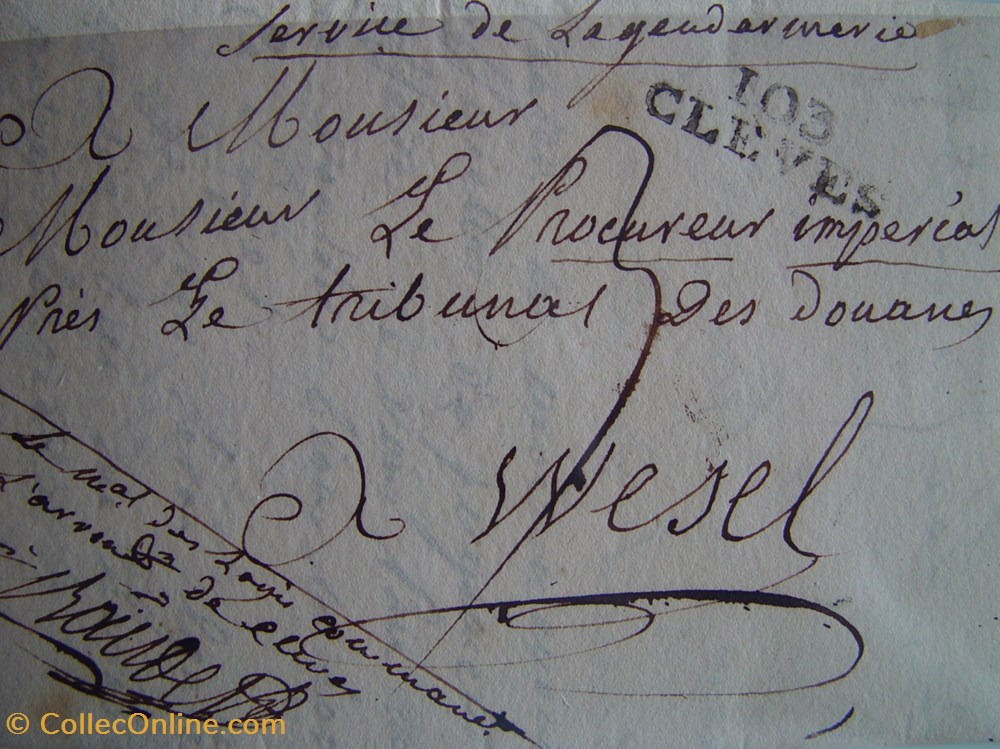 Service de Lagendarmerie
103
CLEVES
A Monsieur
Monsieur Le Procureur imperial
Près Le tribunal Des Douanes
à Wesel
Le mal des Logis Commanet
L'arrond de Cleves
© CollecOnline.com